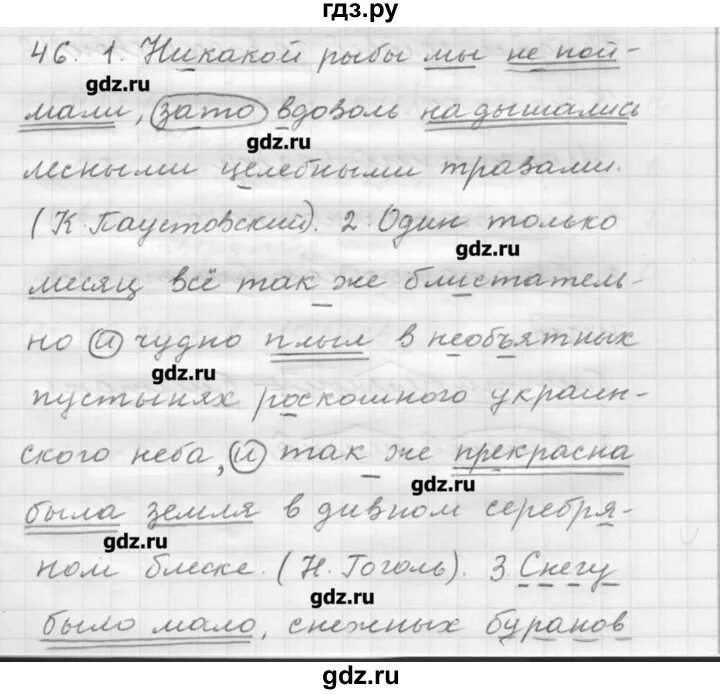 гдз.ру
46. 1. Никакой рыбы мы не пой-
gdz.ru
мали, зато вдоволь надышались
gdz.ru
лесными целебными травами.
(К. Паустовский). 2. Один только
gdz.ru
месяц всё так же блистатель-
но и чудно плыл в необъятных
gdz.ru
пустынях роскошного украин-
ского неба, и так же прекрасна
gdz.ru
была земля в дивном серебря-
gdz.ru
ном блеске. (Н. Гоголь). 3. Снегу
gdz.ru
было мало, снежных буранов
gdz.ru